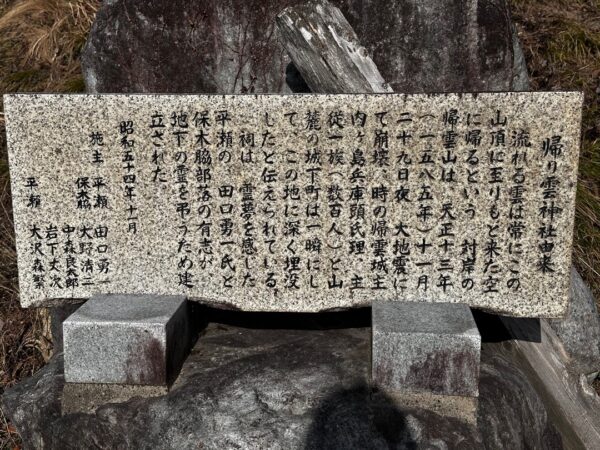 帰り雲神社由来
流れる雲は常にこの
山頂に至りもと来た空
に帰るという 対岸の
帰雲山は 天正十三年
(一一五八五年)十一月
二十九日夜 大地震に
て崩壊、時の帰雲城主
内ヶ島兵庫頭氏理 主
従一族(数百人)と山
麓の城下町は一瞬にし
て、この地に深く埋没
したと伝えられている。
祠は、霊夢を感じた
平瀬の 田口勇一氏と
保木脇部落の有志が
地下の霊を弔うため建
立された
昭和五十四年十一月
施主 平瀬 田口勇一
保木脇 大野清二
中森良太郎
岩下丈次
平瀬 大沢森繁